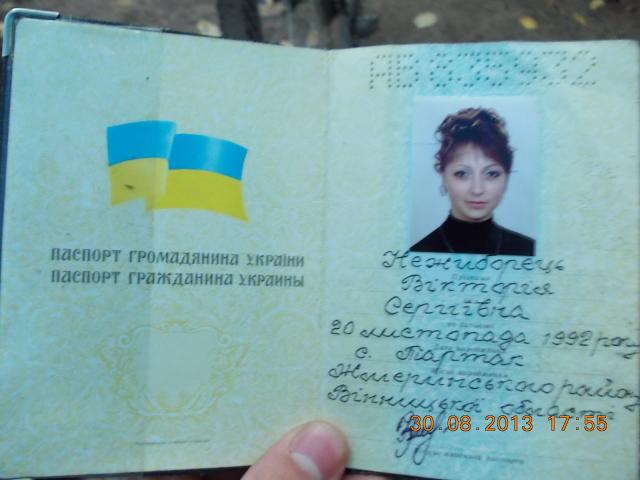 ПАСПОРТ ГРОМАДЯНИНА УКРАЇНИ
ПАСПОРТ ГРАЖДАНИНА УКРАИНЫ
АВ
Нежиборець
Вікторія
Сергіївна
20 листопада 1992 року
с. Тартак
Жмеринського району
Вінницької області
30.08.2013 17:55